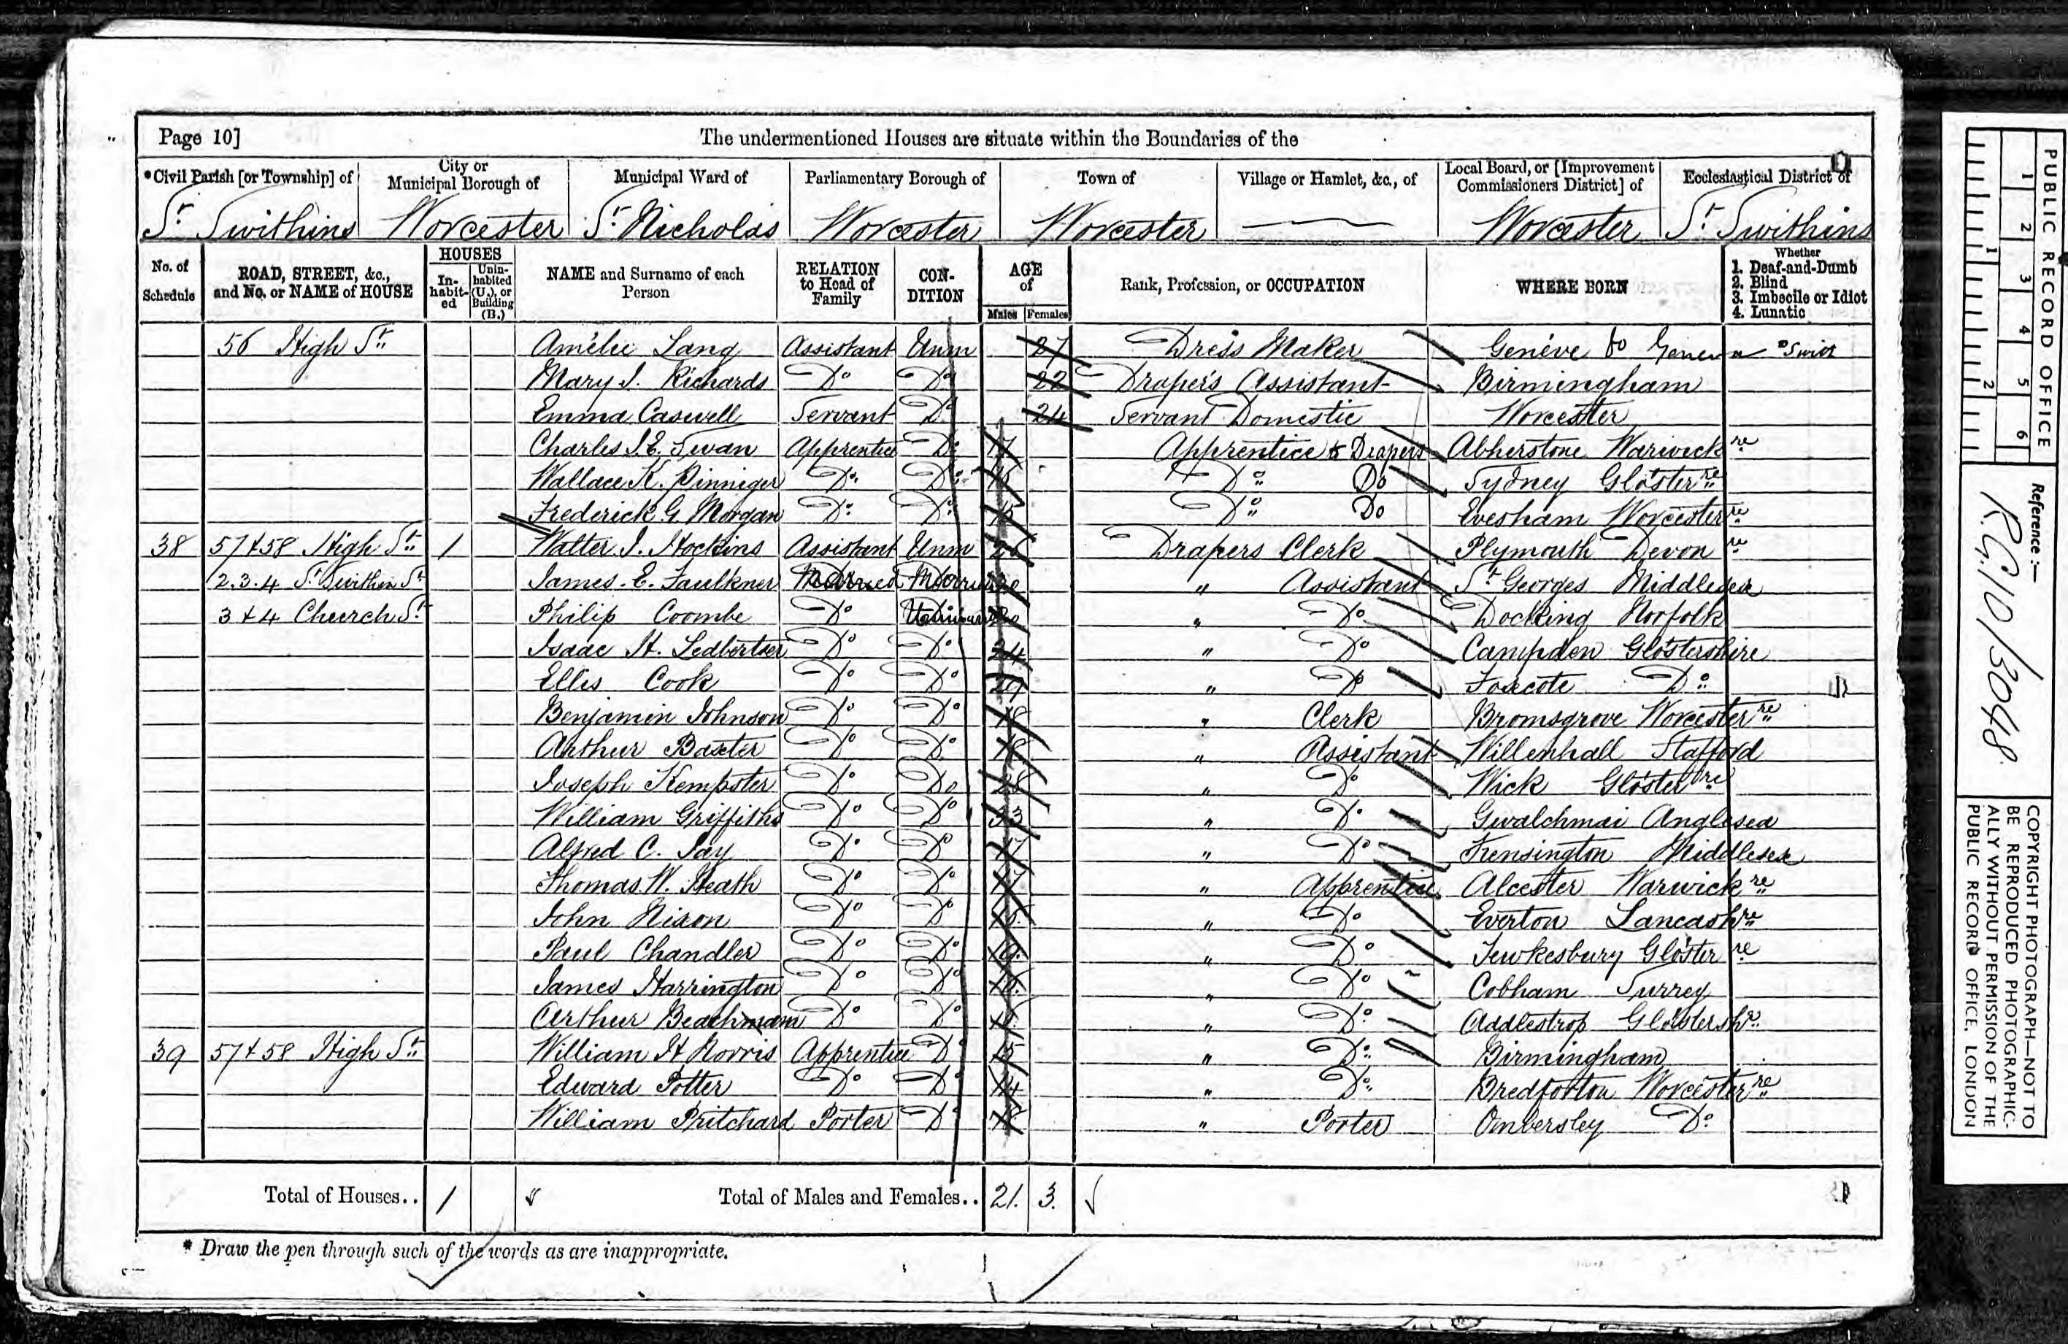 Page 10]
The undermentioned Houses are situate within the Boundaries of the
*Civil Parish [or Township] of City or Municipal Borough of Municipal Ward of Parliamentary Borough of Town of Village or Hamlet, &c., of Local Board, or [Improvement Commissioners District] of Ecclesiastical District of
St Swithins Worcester St Nicholas Worcester Worcester Worcester St Swithins
No. of Schedule ROAD, STREET, &c., and No. or NAME of HOUSE HOUSES In-habit-ed Unin-habited (U.), or Building (B.) NAME and Surname of each Person RELATION to Head of Family CON-DITION AGE of Males Females Rank, Profession, or OCCUPATION WHERE BORN Whether 1. Deaf-and-Dumb 2. Blind 3. Imbecile or Idiot 4. Lunatic
56 High St Amélie Lang Assistant Unm 27 Dress Maker Genéve Geneva Switz
Mary J. Richards Do Do 22 Drapers Assistant Birmingham
Emma Caswell Servant Do 24 Servant Domestic Worcester
Charles J. E. Swan Apprentice Do 17 Apprentice to Drapers Atherstone Warwick re
Wallace K. Pinniger Do Do Do Do Sydney Gloster re
Frederick G. Morgan Do Do Do Do Evesham Worcester re
38 57 & 58 High St 1 Walter J. Hockins Assistant Unm Drapers Clerk Plymouth Devon re
2.3.4 St Swithin St James E. Faulkner Married " Assistant St Georges Middlesex
3 & 4 Church St Philip Coombe Do " Do Docking Norfolk
Isaac H. Ledbetter Do Do 24 " Do Campden Glostershire
Ellis Cook Do Do " Do Foxcote Do
Benjamin Johnson Do Do 18 " Clerk Bromsgrove Worcester re
Arthur Baxter Do Do 18 " Assistant Willenhall Stafford
Joseph Kempster Do Do 28 " Do Wick Gloster re
William Griffiths Do Do 33 " Do Gwalchmai Anglesea
Alfred C. Jay Do Do " Do Kensington Middlesex
Thomas W. Heath Do Do " Apprentice Alcester Warwick re
John Nixon Do Do " Do Everton Lancash re
Paul Chandler Do Do " Do Tewkesbury Gloster re
James Harrington Do Do " Do Cobham Surrey
Arthur Beachmam Do Do " Do Addlestrop Glostersh re
39 57 & 58 High St William H Norris Apprentice Do 15 " Do Birmingham
Edward Potter Do Do 14 " Do Bredforton Worcester re
William Pritchard Porter Do " Porter Ombersley Do
Total of Houses.. 1 Total of Males and Females.. 21. 3.
* Draw the pen through such of the words as are inappropriate.
PUBLIC RECORD OFFICE
1 2 3 4 5 6
1 2
Reference :-
R.G. 10/3048
COPYRIGHT PHOTOGRAPH—NOT TO
BE REPRODUCED PHOTOGRAPHIC-
ALLY WITHOUT PERMISSION OF THE
PUBLIC RECORD OFFICE, LONDON